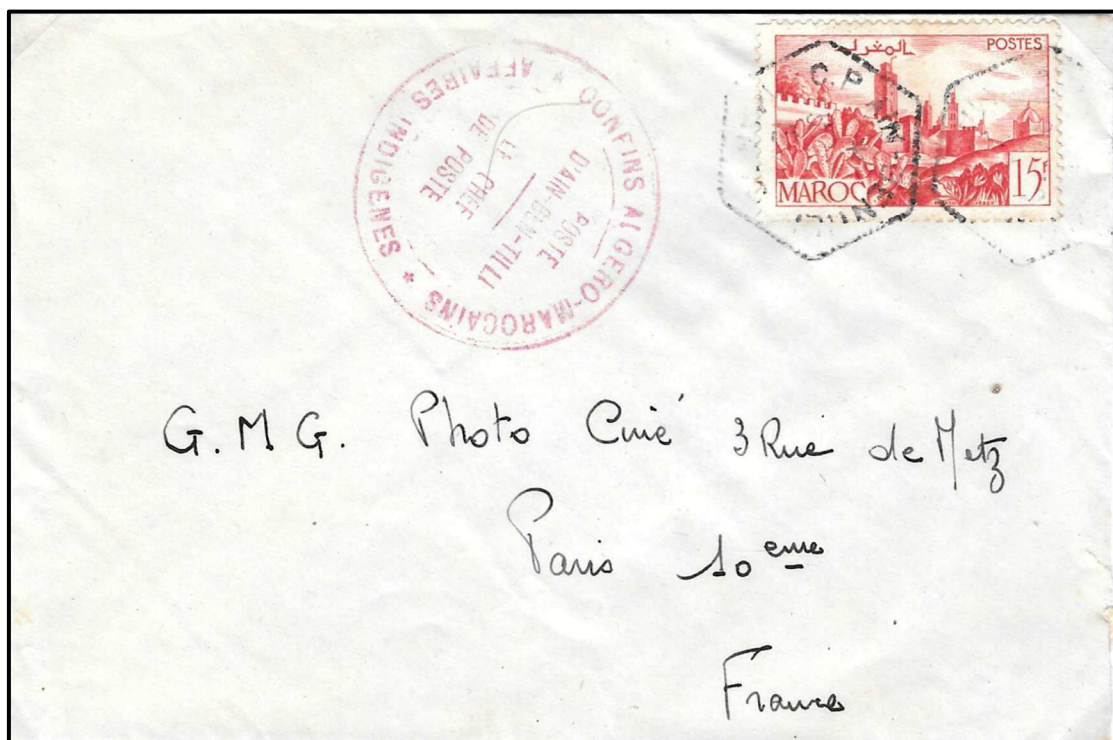 CONFINS ALGERO-MAROCAINS
* AFFAIRES INDIGENES *
POSTE
D'AIN-BEN-TILLI
LE CHEF
DE POSTE
المغرب
POSTES
MAROC
15F
G.M.G. Photo Ciné 3 Rue de Metz
Paris 10eme
France